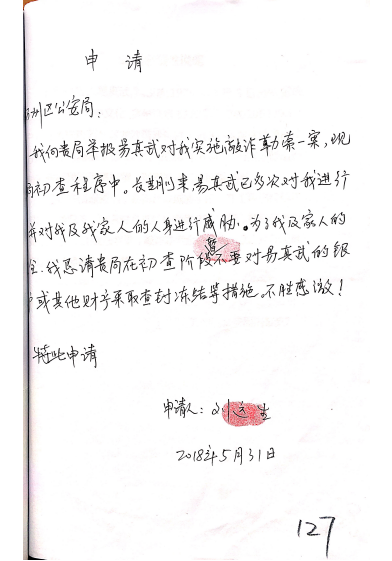 申请
州区公安局:
我向贵局举报易真武对我实施敲诈勒索一案,现
初查程序中。长期以来,易真武已多次对我进行
并对我及我家人的人身进行威胁。为了我及家人的
我恳请贵局在初查阶段暂不要对易真武的银
或其他财产采取查封冻结等措施。不胜感激!
特此申请
申请人:刘 生
2018年5月31日
127